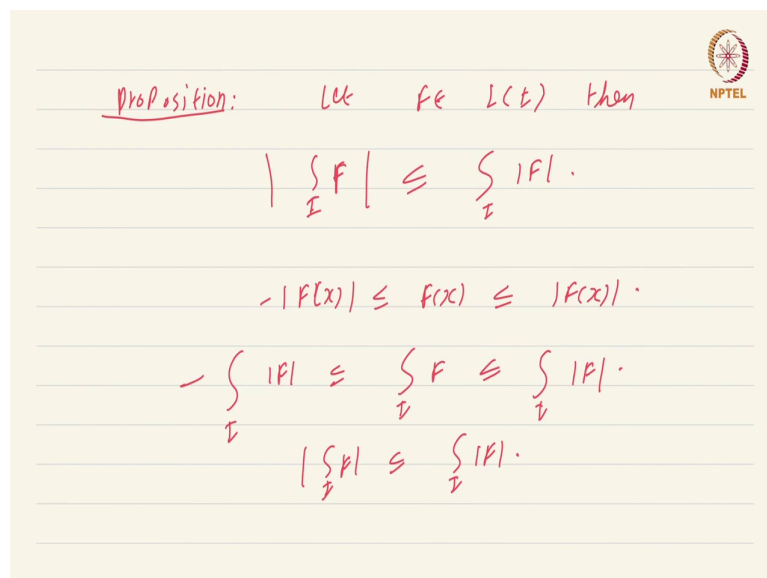 NPTEL
Proposition: Let F ∈ L(I) then
| ∫_I F | ≤ ∫_I |F| .
-|F(x)| ≤ F(x) ≤ |F(x)| .
- ∫_I |F| ≤ ∫_I F ≤ ∫_I |F| .
| ∫_I F | ≤ ∫_I |F| .